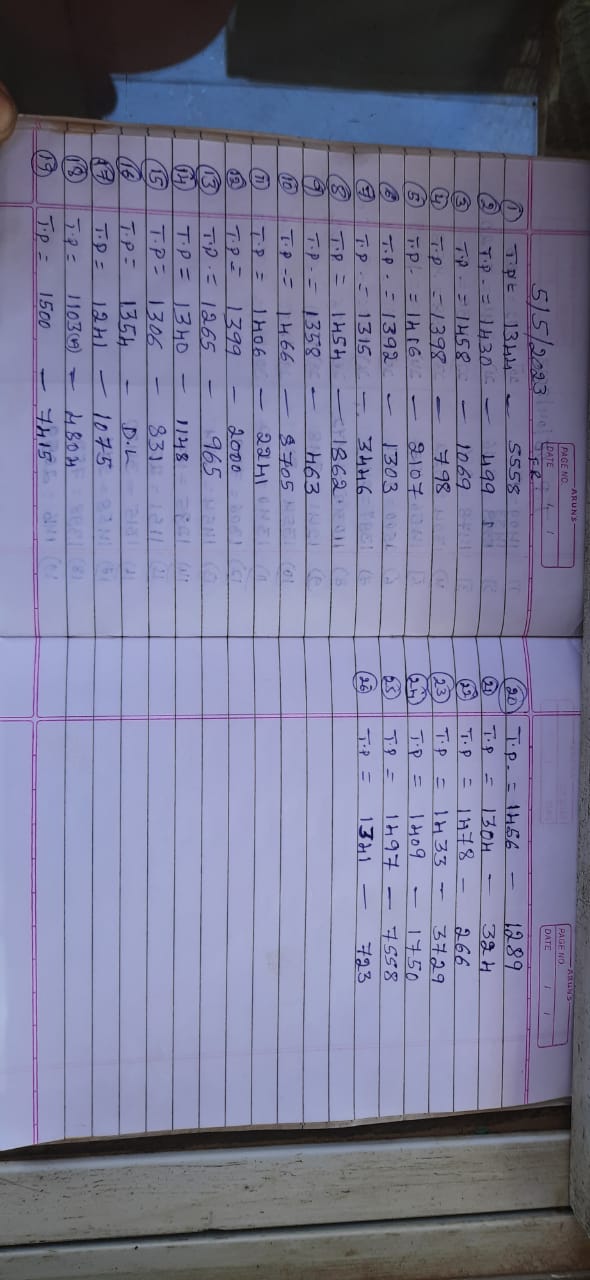 ARUNS
PAGE NO.
DATE
5/5/2023 FR
① T.P = 1344 - 5558
② T.P. = 1430 - 499
③ T.P. = 1458 - 1069
④ T.P. = 1398 - 798
⑤ T.P. = 1416 - 2107
⑥ T.P. = 1392 - 1303
⑦ T.P. = 1315 - 3446
⑧ T.P = 1454 - 1862
⑨ T.P. = 1358 - 463
⑩ T.P. = 1466 - 3705
⑪ T.P = 1406 - 2241
⑫ T.P = 1399 - 2000
⑬ T.P. = 1265 - 965
⑭ T.P = 1340 - 1148
⑮ T.P = 1306 - 831
⑯ T.P = 1354 - D.L
⑰ T.P = 1241 - 1075
⑱ T.P = 1103(H) - 4804
⑲ T.P = 1500 - 7415
ARUNS
PAGE NO.
DATE
⑳ T.P. = 1456 - 1289
㉑ T.P = 1304 - 324
㉒ T.P = 1478 - 266
㉓ T.P = 1433 - 3729
㉔ T.P = 1409 - 1750
㉕ T.P = 1497 - 7558
㉖ T.P = 1341 - 723